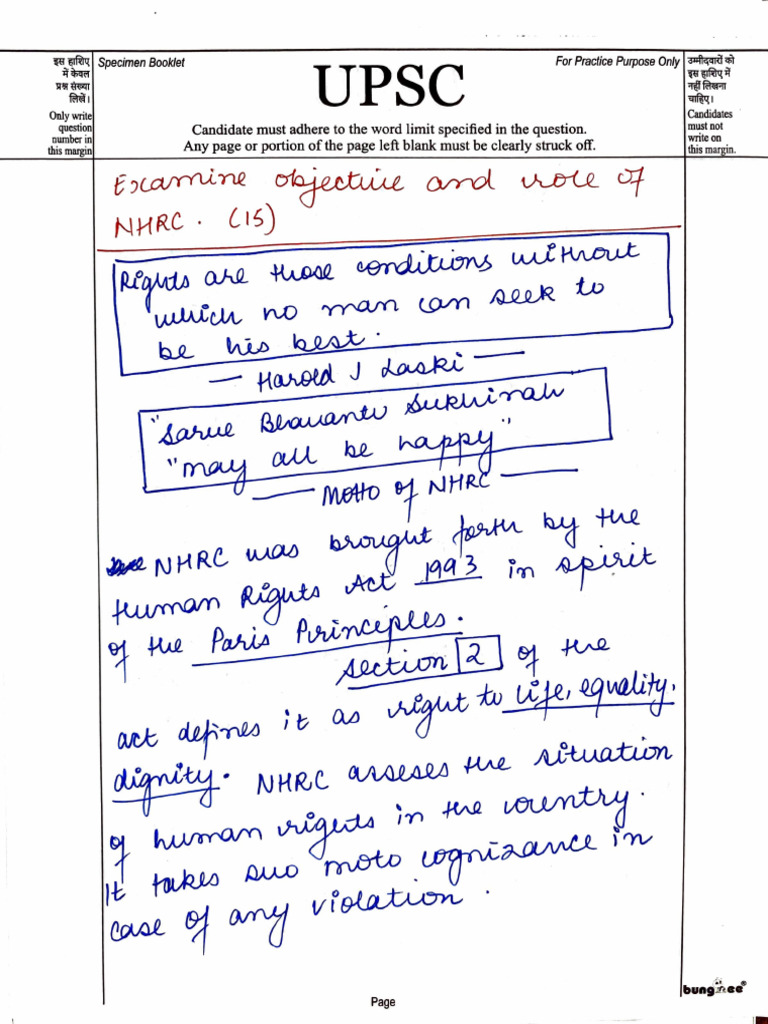 इस हाशिए
में केवल
प्रश्न संख्या
लिखें।
Only write
question
number in
this margin
Specimen Booklet
UPSC
For Practice Purpose Only
Candidate must adhere to the word limit specified in the question.
Any page or portion of the page left blank must be clearly struck off.
उम्मीदवारों को
इस हाशिए में
नहीं लिखना
चाहिए।
Candidates
must not
write on
this margin.
Examine objective and role of
NHRC. (15)
Rights are those conditions without
which no man can seek to
be his best.
— Harold J Laski —
"Sarve Bhavantu Sukhinah
"may all be happy"
— Motto of NHRC —
NHRC was brought forth by the
Human Rights Act 1993 in spirit
of the Paris Principles.
Section 2 of the
act defines it as right to life, equality,
dignity. NHRC asseses the situation
of human rights in the country.
It takes suo moto cognizance in
case of any violation.
Page
bungee®